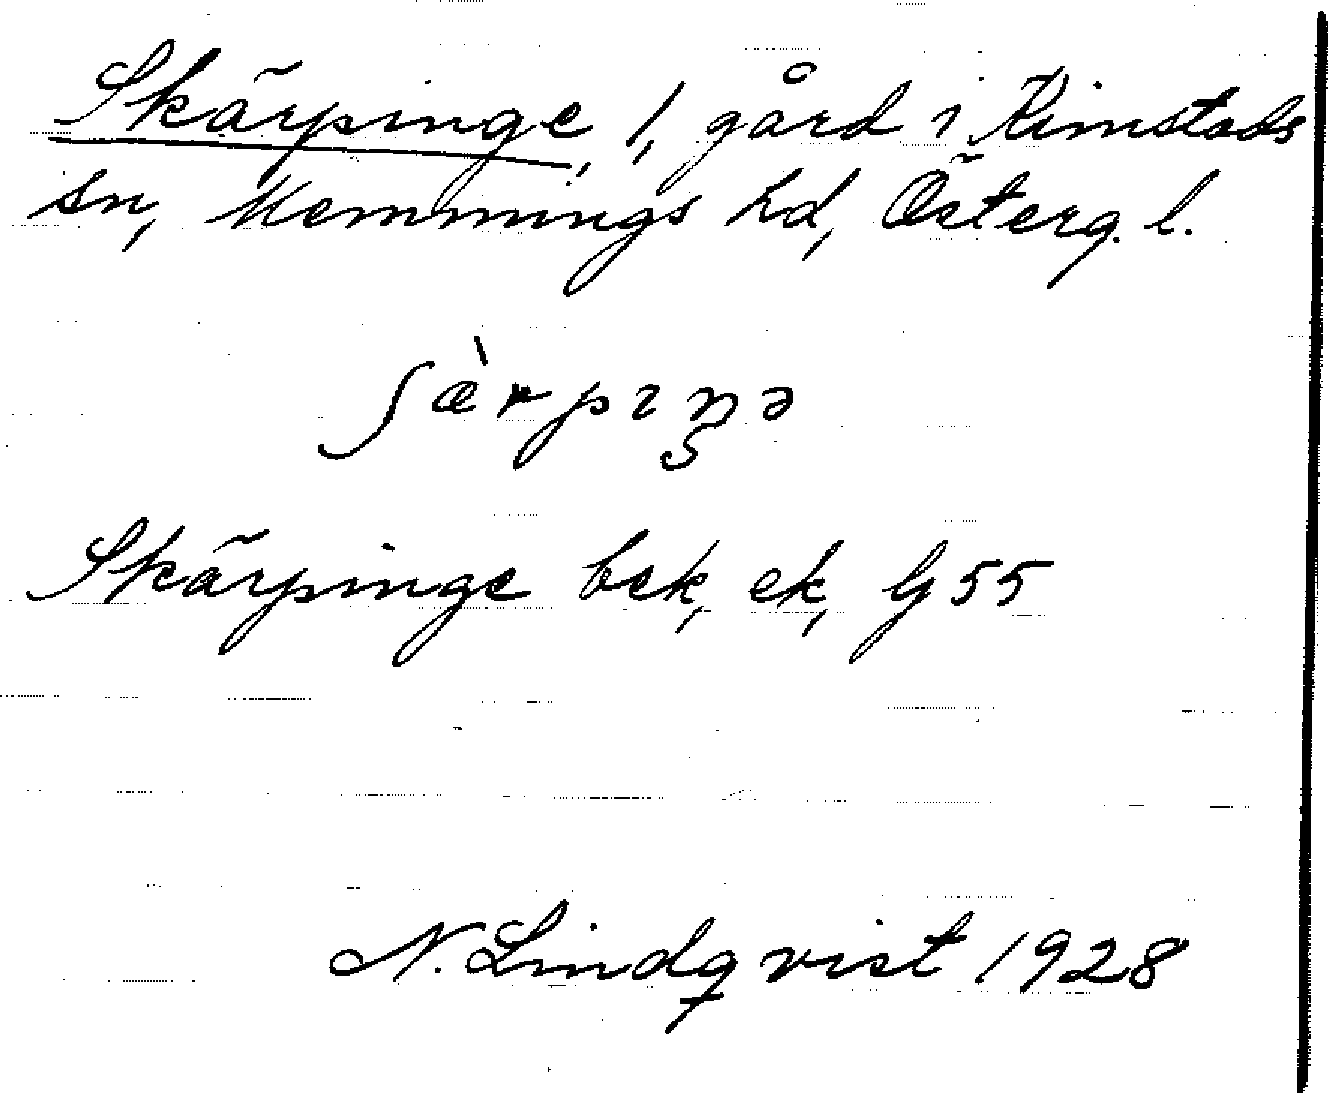 Skärpinge, 1, gård i Kimstads
sn, Memmings hd, Österg. l.
ʃæ̀rpıŋə
Skärpinge bek, ek, Gj 55
N. Lindqvist 1928